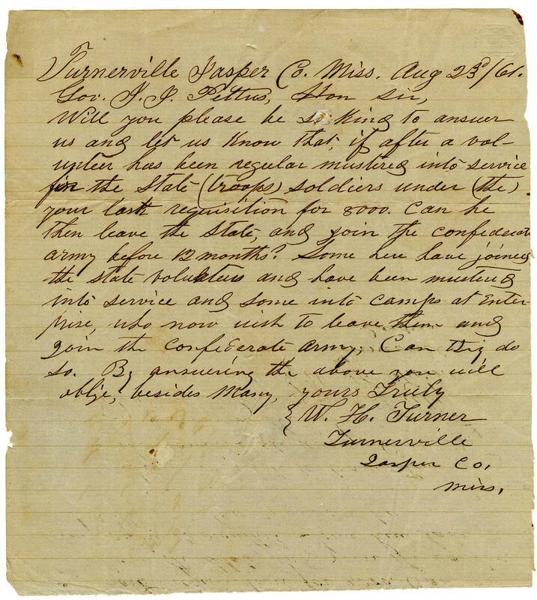 Turnerville Jasper Co. Miss. Aug 23d/61.
Gov. J. J. Pettus, Hon Sir,
Will you please be so kind to answer
us and let us know that, if after a vol-
unteer has been regular mustired into service
in the State (troops) soldiers under (the)
your last requisition for 3000. Can he
then leave the State, and join the confederate
army before 12 months? Some here have joined
the state volunteers and have been mustired
into service and some into camps at Enter-
prise, who now wish to leave them and
join the Confederate army; Can they do
so. By answering the above you will
oblige, besides many, yours Truly
W. H. Turner
Turnerville
Jasper Co.
Miss.